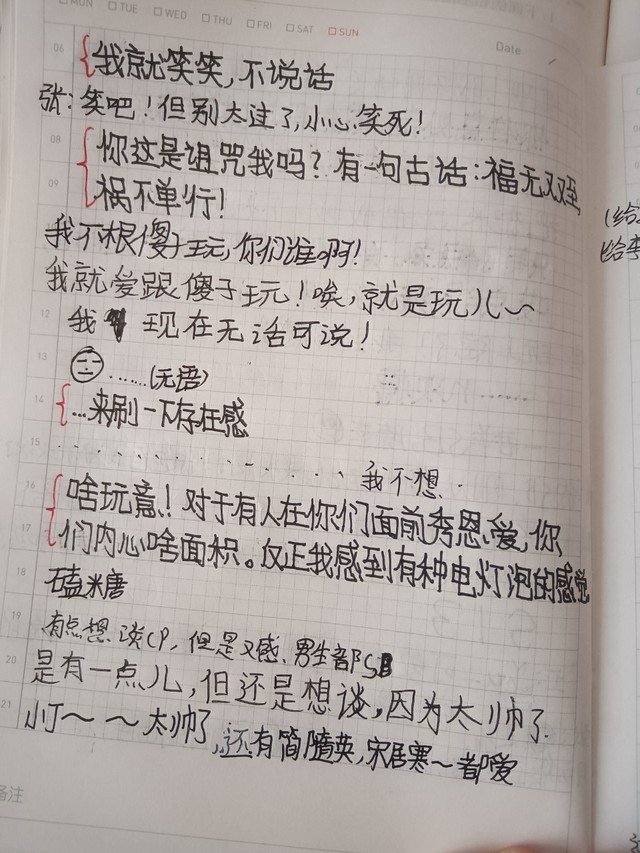 MON TUE WED THU FRI SAT SUN
Date
06 我就笑笑,不说话
张:笑吧!但别太过了,小心笑死!
08 你这是诅咒我吗?有一句古话:福无双至,
09 祸不单行!
我不根傻子玩,你们谁啊!
我就爱跟傻子玩!唉,就是玩儿~
12 我 现在无话可说!
13 ……(无语)
14 …来刷一下存在感
15 ………… 我不想.
16 啥玩意!对于有人在你们面前秀恩爱,你
17 们内心啥面积。反正我感到有种电灯泡的感觉
18 磕糖
19 有点想谈CP,但是又感男生都SB
20 是有一点儿,但还是想谈,因为太帅了.
21 小丁~~太帅了,还有简隋英,宋居寒~都爱
备注
(给
给李